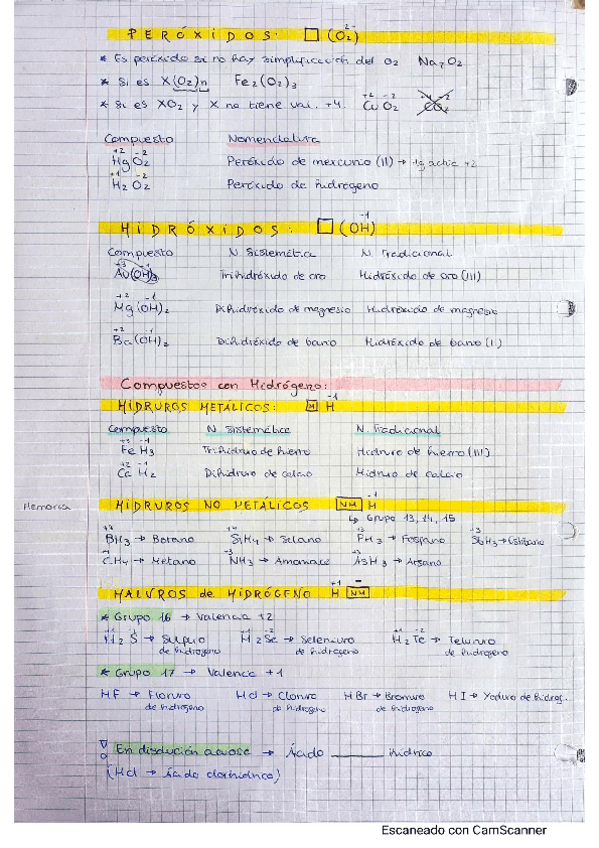 PERÓXIDOS: □ (O₂)²⁻
* Es peróxido si no hay simplificación del O₂ Na₂O₂
* Si es X(O₂)n Fe₂(O₂)₃
* Si es XO₂ y X no tiene val. +4. CuO₂ +2 -2
Compuesto Nomenclatura
+2 -2
HgO₂ Peróxido de mercurio (II) → Hg actúa +2
+1 -2
H₂O₂ Peróxido de hidrógeno
HIDRÓXIDOS: □ (OH)⁻¹
Compuesto N. Sistemática N. Tradicional
+3 -1
Au(OH)₃ Trihidróxido de oro Hidróxido de oro (III)
+2 -1
Mg(OH)₂ Dihidróxido de magnesio Hidróxido de magnesio
+2 -1
Ba(OH)₂ Dihidróxido de bario Hidróxido de bario
Compuestos con Hidrógeno:
HIDRUROS METÁLICOS: M H⁻¹
Compuesto N. Sistemática N. Tradicional
+3 -1
FeH₃ Trihidruro de hierro Hidruro de hierro (III)
+2 -1
CaH₂ Dihidruro de calcio Hidruro de calcio
Memoria HIDRUROS NO METÁLICOS NM H⁻¹
↳ Grupo 13, 14, 15
BH₃ → Borano SiH₄ → Silano → Fosfano SbH₃ → Estibano
CH₄ → Metano NH₃ → Amoniaco AsH₃ → Arsano
HALUROS de HIDRÓGENO H⁺¹ NM⁻
* Grupo 16 → Valencia +2
H₂S → Sulfuro de hidrógeno H₂Se → Seleniuro de hidrógeno H₂Te → Telururo de hidrógeno
* Grupo 17 → Valencia +1
HF → Floruro de hidrógeno HCl → Cloruro de hidrógeno HBr → Bromuro de hidrógeno HI → Yoduro de hidróg.
En disolución acuosa → Ácido ______ hídrico
(HCl → Ácido clorhídrico)
Escaneado con CamScanner